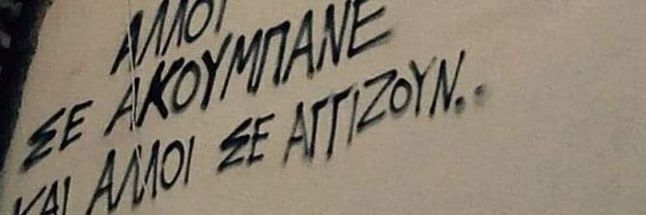 ΑΛΛΟΙ
ΣΕ ΑΚΟΥΜΠΑΝΕ
ΚΑΙ ΑΛΛΟΙ ΣΕ ΑΓΓΙΖΟΥΝ..